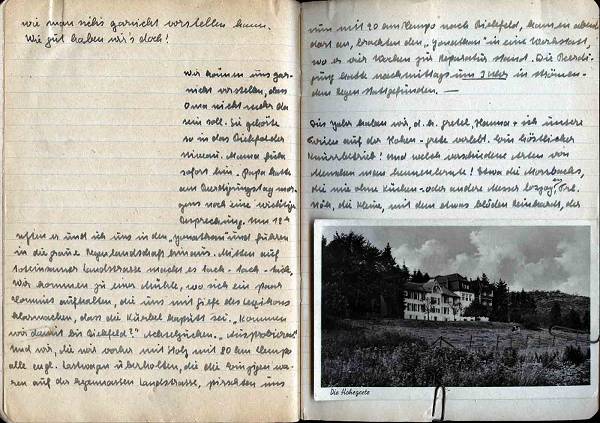 wie man sich's garnicht vorstellen kann.
Wie gut haben wir's doch!
Wir können uns gar-
nicht vorstellen, dass
Oma nicht mehr da
sein soll. Sie gehörte
so in das Bielefelder
Niveau. Mama fuhr
sofort hin. Papa hatte
am Beerdigungstag mor-
gens noch eine wichtige
Besprechung. Um 12 h
er und ich uns in den "Jonathan" und fuhren
in die graue Regenlandschaft hinaus. Mitten auf
Landstrasse macht es tack-tack-
Wir kommen zu einer Mühle, wo sich ein paar
aufhalten, die uns mit Hilfe des Lexikons
klarmachen, dass die Kurbel kaputt sei. "Kommen
wir damit bis Bielefeld?" Achselzucken. "Ausprobieren"
und wir, die wir vorher mit Stolz mit 80 km Tempo
alle engl. Lastwagen überholten, die die einzigen wa-
ren auf der regennassen Landstrasse, pirschten uns
nun mit 20 km Tempo nach Bielefeld, kamen abends
dort an, brachten den "Jonathan" in eine Werkstatt,
wo er vier Wochen zur Reparatur stand. Die Beerdi-
gung hatte nachmittags um 3 Uhr in strömen-
dem Regen stattgefunden. —
Dies Jahr haben wir, d.h. Gretel, Hanna + ich unsere
Ferien auf der Hohen-grete verlebt. Ein köstlicher
! Und welch verschiedene Arten von
Menschen man kennenlernte! Etwa die
die nie ohne Kuchen- oder andere Messer , Frl.
die kleine, mit dem etwas blöden Reinhardt, der
Die Hohegrete